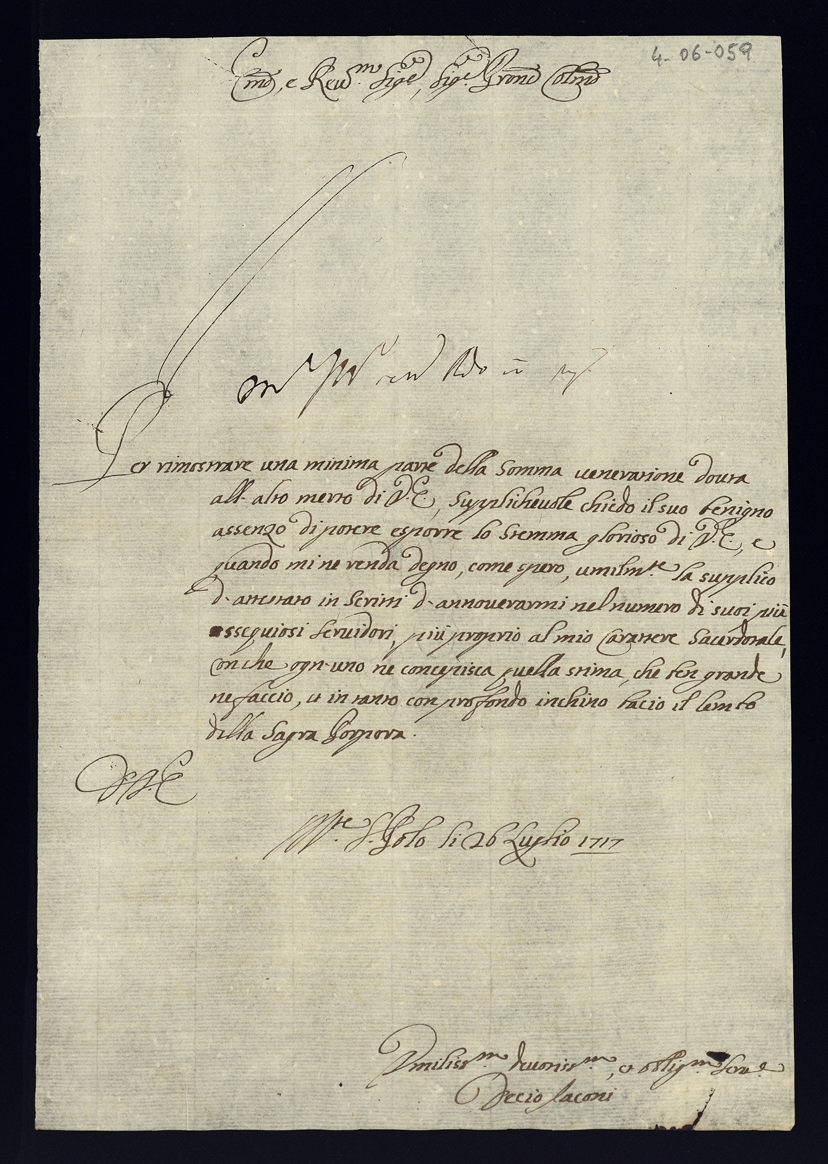 4-06-059
Em͂o, e Reu.mo Sig.re, Sig.re Pron͂e Colm͂o
Per rimostrare una minima parte della Somma uenerazione douta
all'alto merto di V.E., Supplicheuole chiedo il suo benigno
assenzo di potere esporre lo Stemma glorioso di V.E., e
quando mi ne renda degno, come spero, umilm.te la supplico
d'attestato in Scritti d'annouerarmi nel numero di suoi più
ossequiosi Seruidori, più proprio al mio Carattere Sacerdotale,
con che ogn'uno ne concepisca quella stima, che ben grande
ne faccio, et in tanto con profondo inchino bacio il lembo
della Sagra Porpora.
D. V. E.
M.te S. Polo li 26 Luglio 1717
Vmiliss.mo deuotiss.mo, et obblig.mo Seru.e
Decio Iaconi